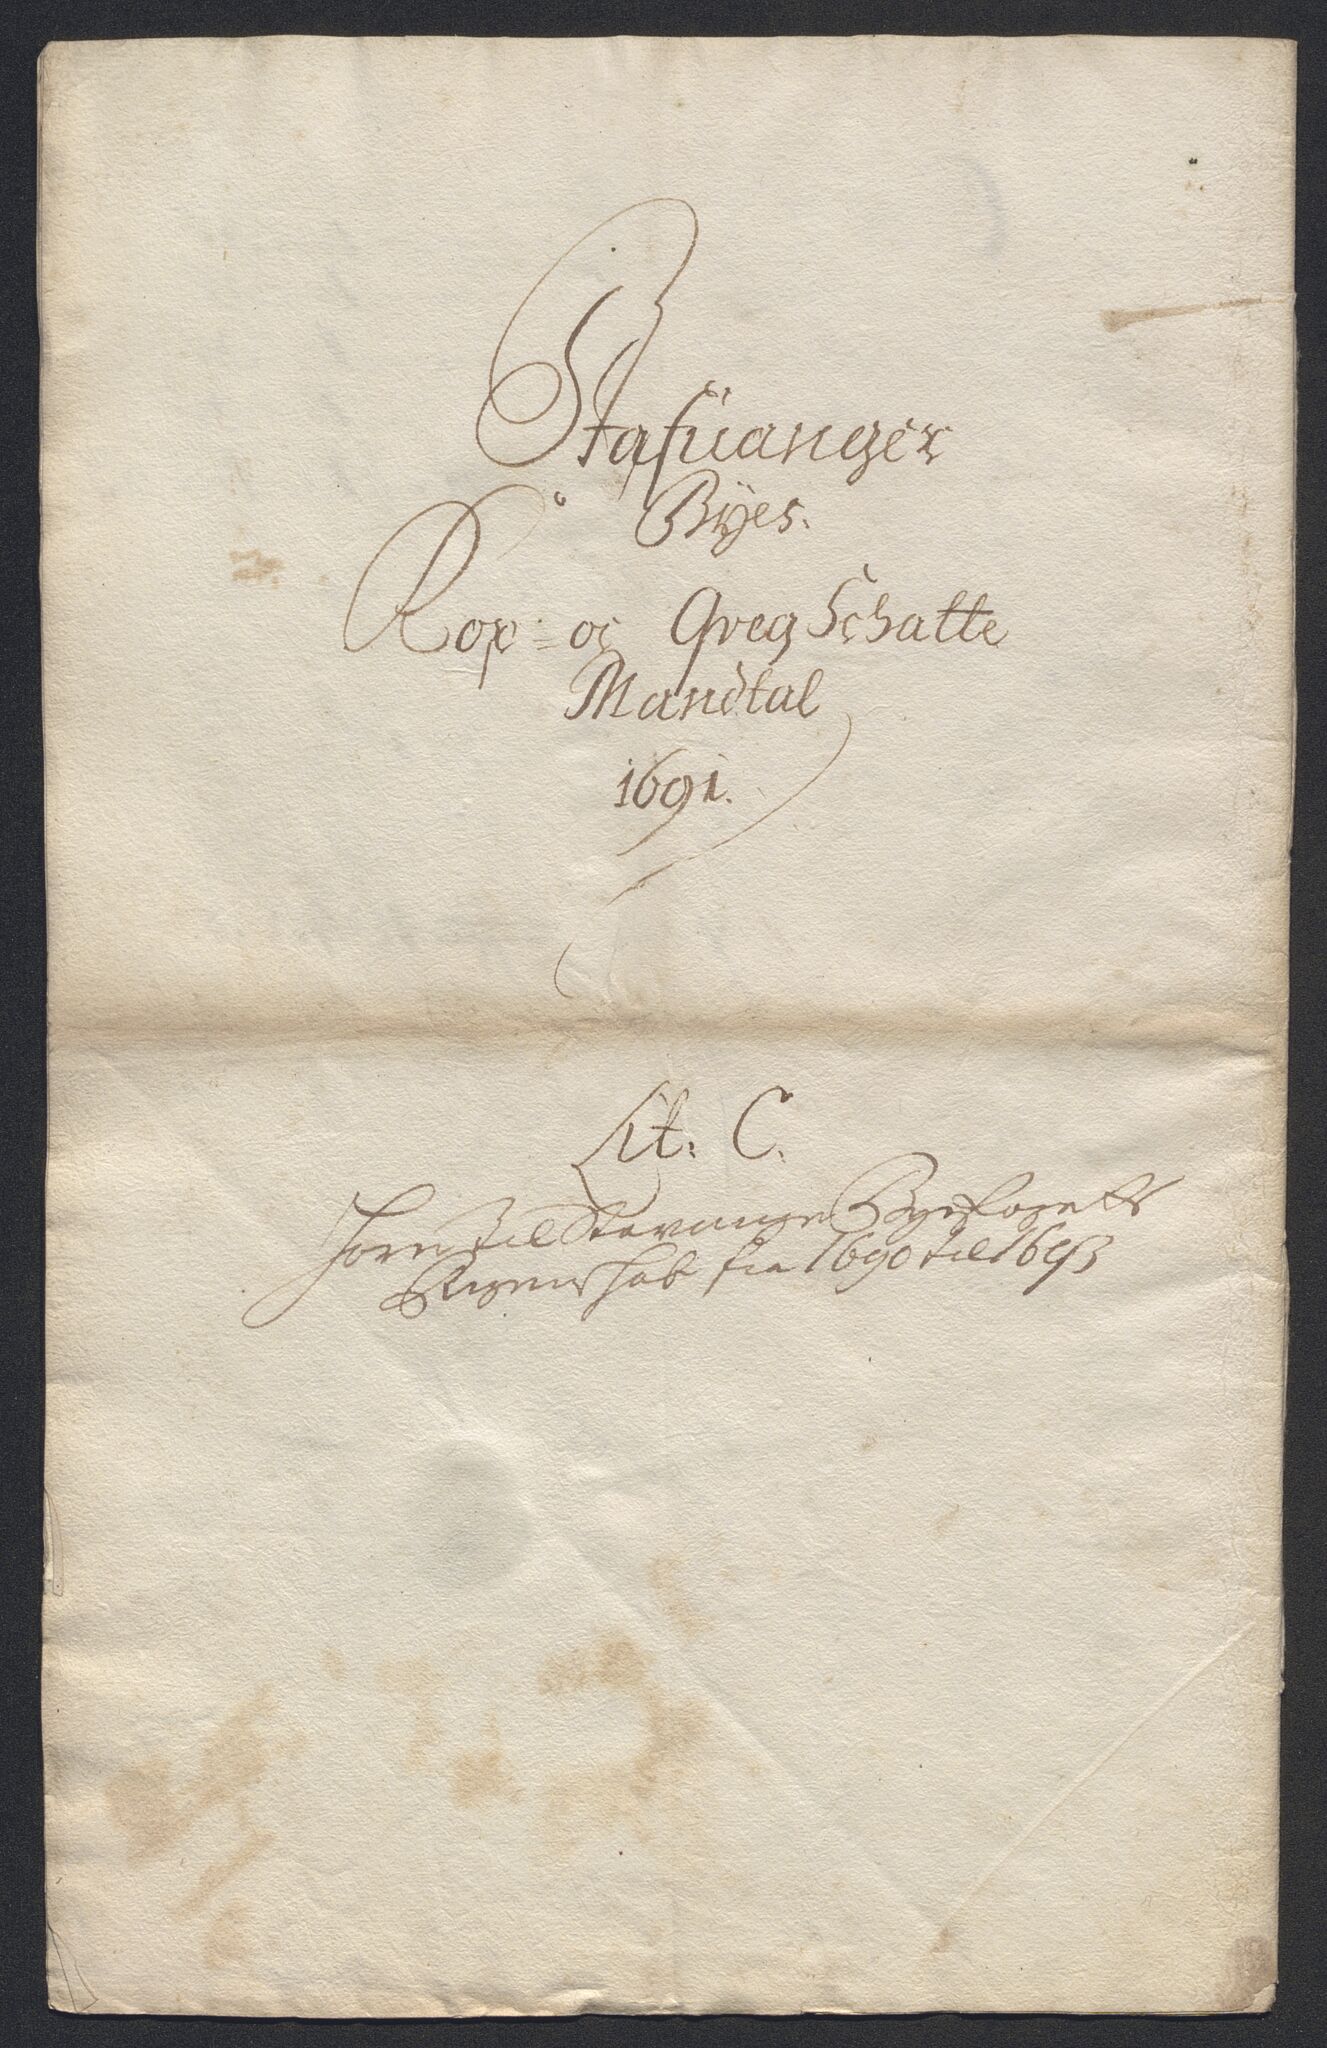 Stafuanger
Byes.
Kop- og Qveg Schatte
Mandtal
1691.
Lit. C.
til Stavanger Byefogets
Regenskab fra 1690 til 1693